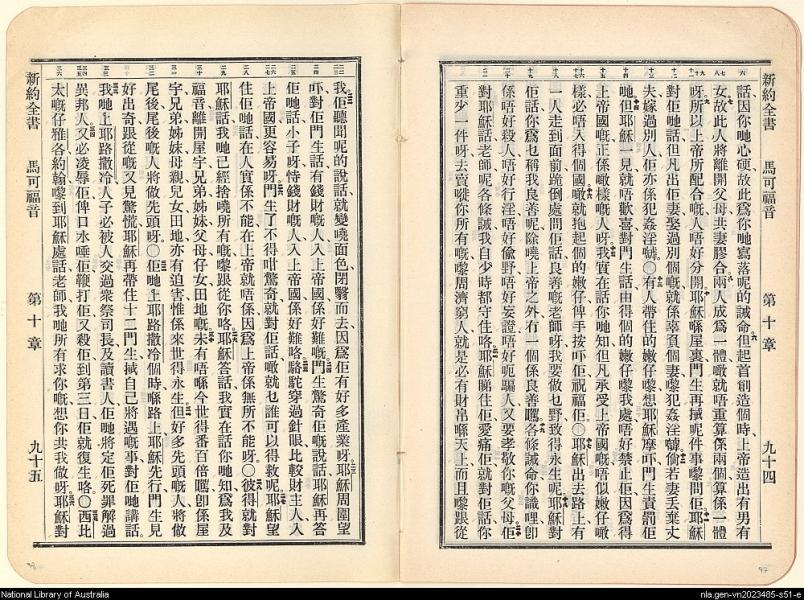 新約全書　馬可福音　第十章　九十四
話因你哋心硬故此爲你哋寫落呢的誡命但起首創造個時上帝造出有男有
女故此人將離開父母共妻膠合兩人成爲一體噉就唔重算係兩個算係一體
呀所以上帝所配合嘅人唔好分開耶穌喺屋裏門生再拭呢件事嚟問佢耶穌
對佢哋話但凡出佢妻娶過別個嘅就係辜負個妻嚟犯姦淫倘若妻丟棄丈
夫嫁過別人佢亦係犯姦淫○有人帶住的嫩仔嚟想耶穌摩吓門生責罰佢
哋但耶穌一見就唔歡喜對門生話由得個的嫩仔嚟我處唔好禁止佢因爲得
上帝國嘅正係噉樣嘅人呀我實在話你哋知但凡承受上帝國嘅唔似嫩仔噉
樣必唔入得個國噉就抱起個的嫩仔俾手按吓佢祝福佢○耶穌出去路上有
一人走到面前跪倒處問佢話良善嘅老師呀我要做乜野致得永生呢耶穌對
佢話你爲乜稱我良善呢除嘵上帝之外冇一個係良善嘅各條誡命你識哩即
係唔好殺人唔好行淫唔好偷野唔好妄證唔好呃騙人又要孝敬你嘅父母佢
對耶穌話老師呢各條誡我自少時都守住咯耶穌睇住佢愛痛佢就對佢話你
重少一件呀去賣嘵你所有嘅嚟周濟窮人就是必有財帛喺天上而且嚟跟從
我佢聽聞呢的說話就變嘵面色閉翳而去因爲佢有好多產業呀耶穌周圍望
吓對佢門生話有錢財嘅人入上帝國係好難嘅門生驚奇佢嘅說話耶穌再答
佢哋話小子呀恃錢財嘅人入上帝國係好難咯駱駝穿過針眼比較財主人入
上帝國更容易呀門生了不得咁驚奇就對佢話噉就乜誰可以得救呢耶穌望
住佢哋話在人實係不能在上帝就唔係因爲上帝係無所不能呀○彼得就對
耶穌話我哋已經捨嘵所有嘅嚟跟從你咯耶穌答話我實在話你哋知爲我及
福音離開屋宇兄弟姊妹父母仔女田地嘅未有唔喺今世得番百倍嘅卽係屋
宇兄弟姊妹母親兒女田地亦有迫害惟係來世得永生但好多先頭嘅人將做
尾後尾後嘅人將做先頭呀○佢哋上耶路撒冷個時喺路上耶穌先行門生見
好出奇跟從嘅又見驚慌耶穌再帶住十二門生拭自己將遇嘅事對佢哋講話
我哋上耶路撒冷人子必被人交過衆祭司長及讀書人佢哋將定佢死罪解過
異邦人又必凌辱佢俾口水唾佢鞭打佢又殺佢到第三日佢就復生咯○西比
太嘅仔雅各約翰嚟到耶穌處話老師我哋所有求你嘅想你共我做呀耶穌對
新約全書　馬可福音　第十章　九十五
National Library of Australia
nla.gen-vn2023485-s51-e